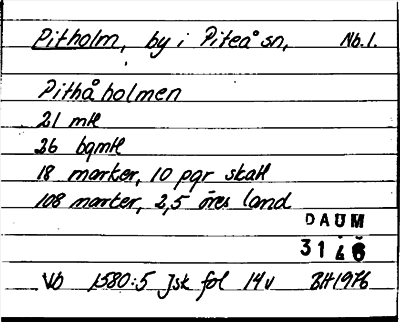 Pitholm, by i Piteå sn, Nb.l.
Pithåholmen
21 mtl
26 bgmtl
18 marker, 10 pgr skatt
108 marker, 2,5 öres land
DAUM
3146
Vb 1580:5 Jsk fol 14v BH1976